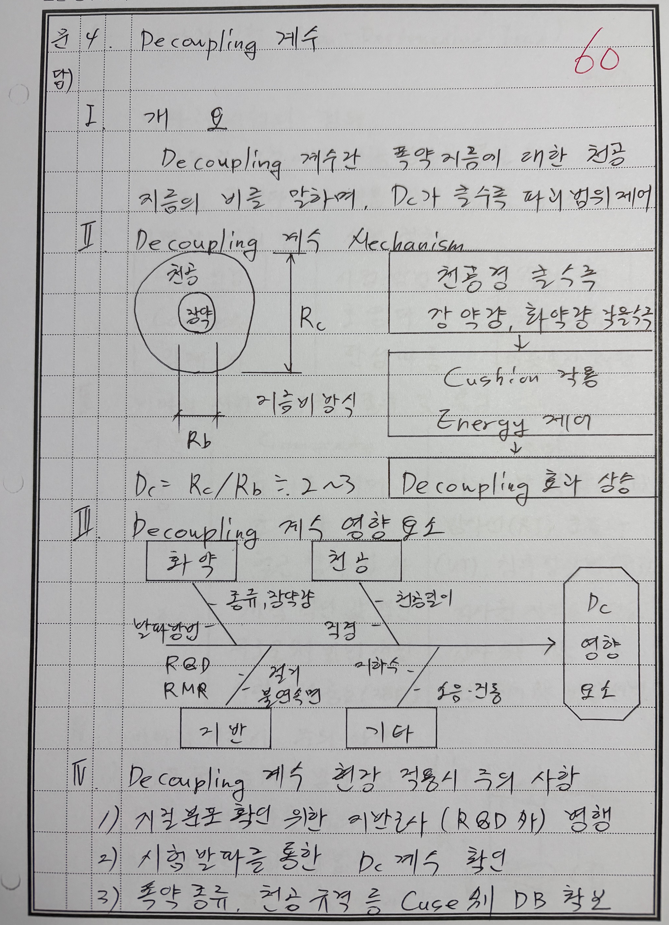 문 4. Decoupling 계수
60
답)
I. 개 요
Decoupling 계수란 폭약지름에 대한 천공
지름의 비를 말하며, Dc가 클수록 파괴범위제어
II. Decoupling 계수 Mechanism
천공
장약
Rc
지름비방식
Rb
Dc = Rc/Rb ≒ 2~3
천공경 클수록
장약량, 화약량 작을수록
Cushion 작용
Energy 제어
Decoupling 효과 상승
III. Decoupling 계수 영향요소
화약
천공
종류, 장약량
발파방법
천공길이
직경
RQD
RMR
절리
불연속면
지하수
소음·진동
지반
기타
Dc
영향
요소
IV. Decoupling 계수 현장 적용시 주의 사항
1) 지질분포 확인 위한 지반조사 (RQD 外) 병행
2) 시험발파를 통한 Dc 계수 확인
3) 폭약종류, 천공규격 등 Case 別 DB 확보